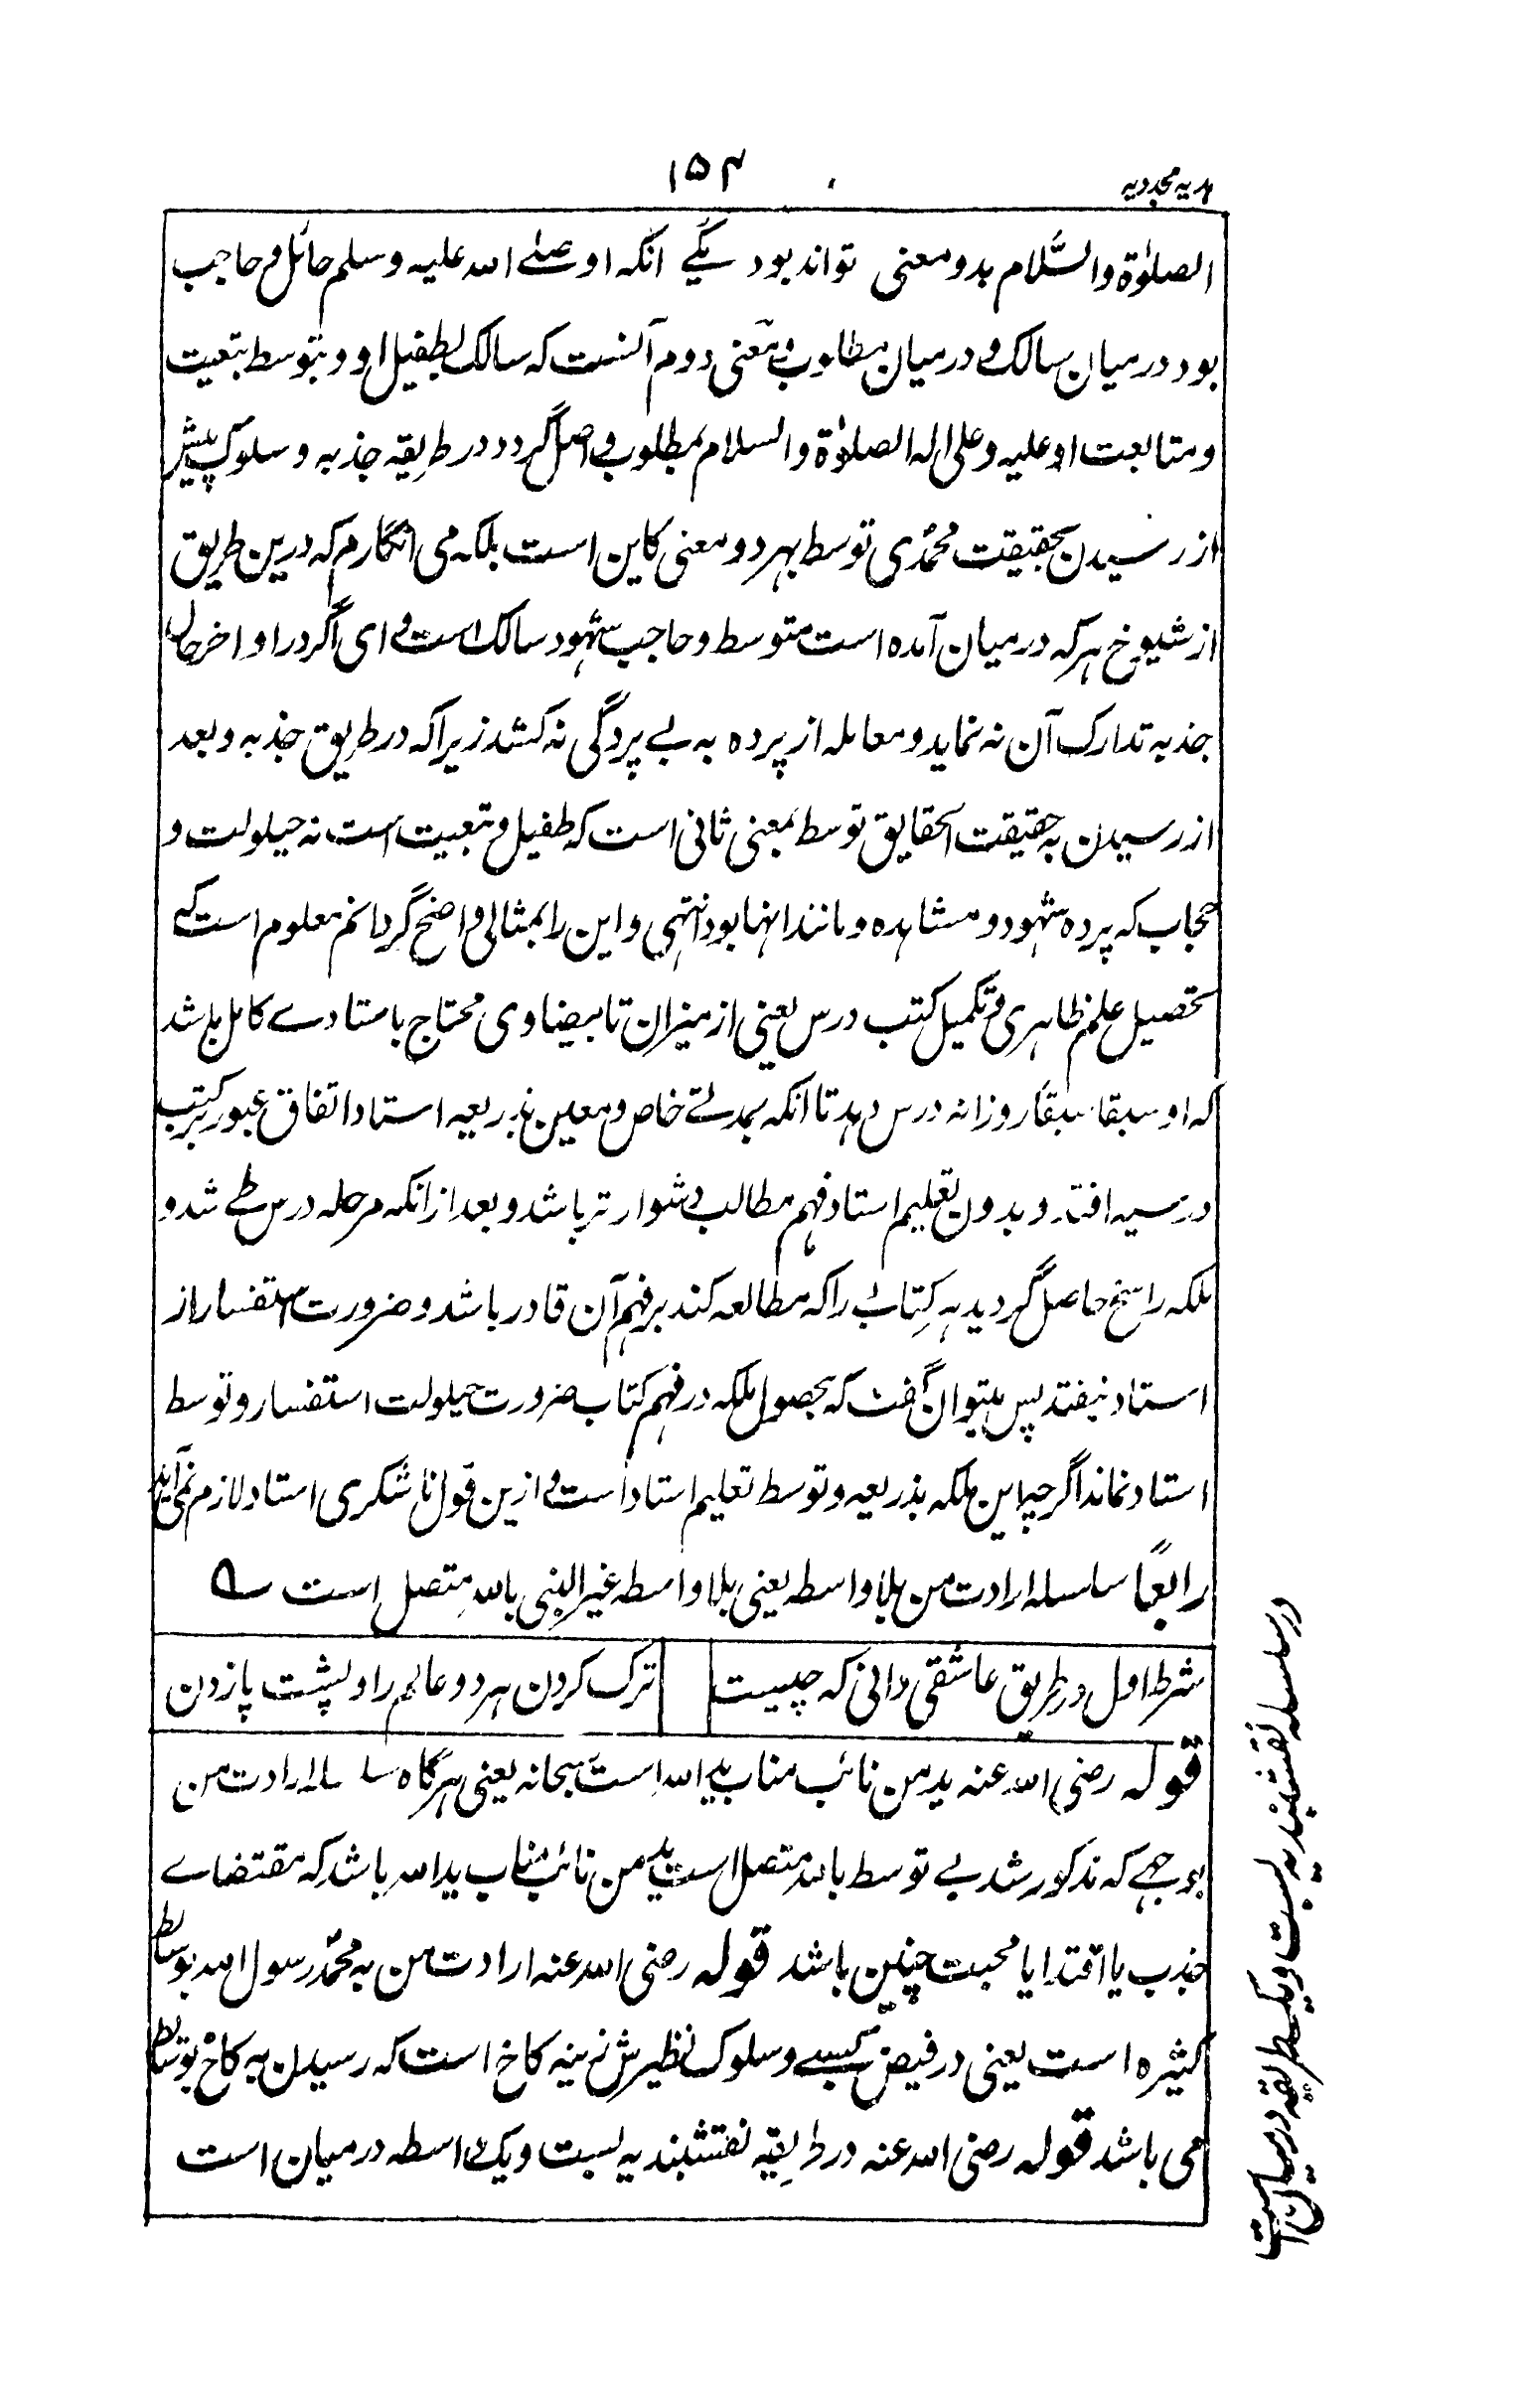 هدیه مجددیه
۱۵۴
الصلوٰة والسَّلام بدو معنی تواند بود یکے آنکه او صلے الله علیه وسلم حائل و حاجب
بود در میان سالک و در میان مطلوب و معنی دوم آنست که سالک بطفیل او و بتوسط تبعیت
و متابعت او علیه وعلی اله الصلوٰة والسلام بمطلوب واصل گردد در طریقه جذبه و سلوک پیش
از رسیدن بحقیقت محمّدی توسط بهر دو معنی کاین است بلکه می انگارم که درین طریق
از شیوخ هر که در میان آمده است متوسط و حاجب شهود سالک است وای اگر در اواخر حال
جذبه تدارک آن نه نماید و معامله از پرده به بے پردگی نه کشد زیراکه در طریق جذبه و بعد
از رسیدن به حقیقت الحقایق توسط بمعنی ثانی است که طفیل و تبعیت است نه حیلولت و
حجاب که پرده شهود و مشاهده و مانند انها بود انتهی و این را بمثالی واضح گردانم معلوم است که
تحصیل علم ظاهری و تکمیل کتب درس یعنی از میزان تا بیضاوی محتاج باستادے کامل باشد
که او سبقا سبقاً روزانه درس دهد تا آنکه بمدتے خاص و معین بذریعه استاد اتفاق عبور بر کتب
درسیه افتد و بدون تعلیم استاد فهم مطالب دشوار تر باشد و بعد ازانکه مرحله درس طے شد و
ملکه راسخ حاصل گردید هر کتابے را که مطالعه کند بر فهم آن قادر باشد و ضرورت استفسار از
استاد نیفتد پس میتوان گفت که بحصول ملکه در فهم کتاب ضرورت حیلولت استفسار و توسط
استاد نماند اگرچه این ملکه بذریعه و توسط تعلیم استاد است و ازین قول ناشکری استاد لازم نمی آید
رابعاً سلسله ارادت من بلا واسطه یعنی بلا واسطه غیر النبی بالله متصل است ؎
شرط اول در طریق عاشقی دانی که چیست ترک کردن هر دو عالم را و پشت پا زدن
قوله رضی الله عنه ید من نائب مناب ید الله است سبحانه یعنی هرگاه سلسله ارادت من
بوجهے که مذکور شد بے توسط بالله متصل است ید من نائب مناب ید الله باشد که مقتضاے
جذب یا اقتدا یا محبت چنین باشد قوله رضی الله عنه ارادت من به محمّد رسول الله بوسائط
کثیره است یعنی در فیض کسبی و سلوک نظیرش زینه کاخ است که رسیدن به کاخ بوسائط
می باشد قوله رضی الله عنه در طریقه نقشبندیه بست و یک واسطه درمیان است
در سلسله نقشبندیه بست و یک طریقه درمیان است